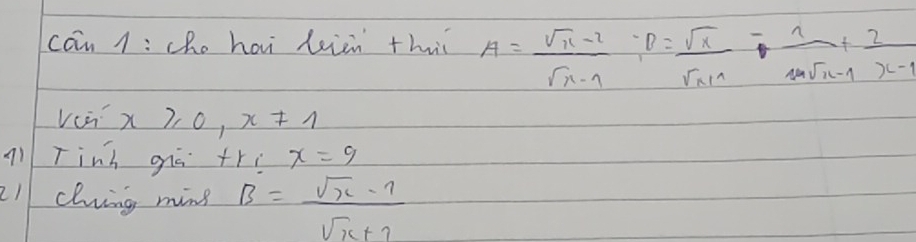 Câu 1: cho hai biểu thức A = (√x - 2)/(√x - 1) ; B = √x/(√x + 1) - 1/(√x - 1) + 2/(x - 1)
Với x ≥ 0, x ≠ 1
1) Tính giá trị x = 9
2) chứng minh B = (√x - 1)/(√x + 1)